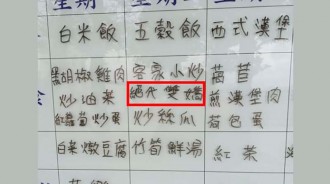 星期
白米飯 五穀飯 西式漢堡
黑胡椒雞肉 客家小炒 萵苣
炒油菜 絕代雙嬌 煎漢堡肉
紅蘿蔔炒蛋 炒絲瓜 荷包蛋
白菜燉豆腐 竹筍鮮湯 紅茶